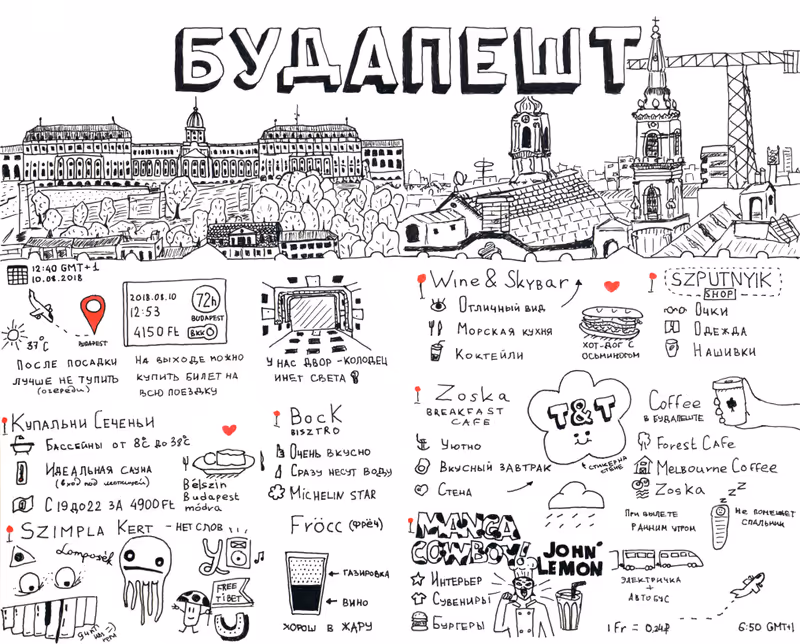 БУДАПЕШТ
12:40 GMT+1
10.08.2018
37°C
BUDAPEST
ПОСЛЕ ПОСАДКИ
ЛУЧШЕ НЕ ТУПИТЬ
(очереди)
2018.08.10
12:53
4150 Ft
72h
BUDAPEST
BKK
НА ВЫХОДЕ МОЖНО
КУПИТЬ БИЛЕТ НА
ВСЮ ПОЕЗДКУ
У НАС ДВОР-КОЛОДЕЦ
И НЕТ СВЕТА
WINE & SKYBAR
ОТЛИЧНЫЙ ВИД
МОРСКАЯ КУХНЯ
КОКТЕЙЛИ
ХОТ-ДОГ С
ОСЬМИНОГОМ
SZPUTNYIK
SHOP
ОЧКИ
ОДЕЖДА
НАШИВКИ
КУПАЛЬНИ СЕЧЕНЬИ
БАССЕЙНЫ ОТ 8°C ДО 38°C
ИДЕАЛЬНАЯ САУНА
(вход под лестницей)
С 19 ДО 22 ЗА 4900 Ft
Bélszín
Budapest
módra
BOCK
BISZTRO
ОЧЕНЬ ВКУСНО
СРАЗУ НЕСУТ ВОДУ
MICHELIN STAR
ZOSKA
BREAKFAST
CAFE
УЮТНО
ВКУСНЫЙ ЗАВТРАК
СТЕНА
T&T
Coffee
В БУДАПЕШТЕ
Forest Cafe
Melbourne Coffee
Zoska
ПРИ ВЫЛЕТЕ
РАННИМ УТРОМ
zzz
НЕ ПОМЕШАЕТ
СПАЛЬНИК
SZIMPLA KERT - НЕТ СЛОВ
FREE
TIBET
FRÖCC (ФРЁЧ)
ГАЗИРОВКА
ВИНО
ХОРОШ В ЖАРУ
MANGA
COWBOY!
ИНТЕРЬЕР
СУВЕНИРЫ
БУРГЕРЫ
JOHN
LEMON
ЭЛЕКТРИЧКА
+
АВТОБУС
6:50 GMT+1